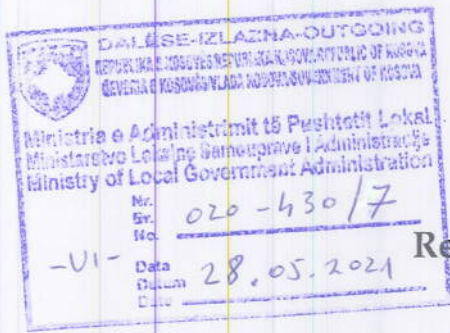 DALËSE-IZLAZNA-OUTGOING
REPUBLIKA E KOSOVËS/REPUBLIKA KOSOVO/REPUBLIC OF KOSOVA
QEVERIA E KOSOVËS/VLADA KOSOVO/GOVERNMENT OF KOSOVA
Ministria e Administrimit të Pushtetit Lokal
Ministarstvo Lokalne Samouprave i Administracije
Ministry of Local Government Administration
Nr.
Br.
No.
020-430/7
-VI-
Data
Datum
Date
28.05.2021
Re